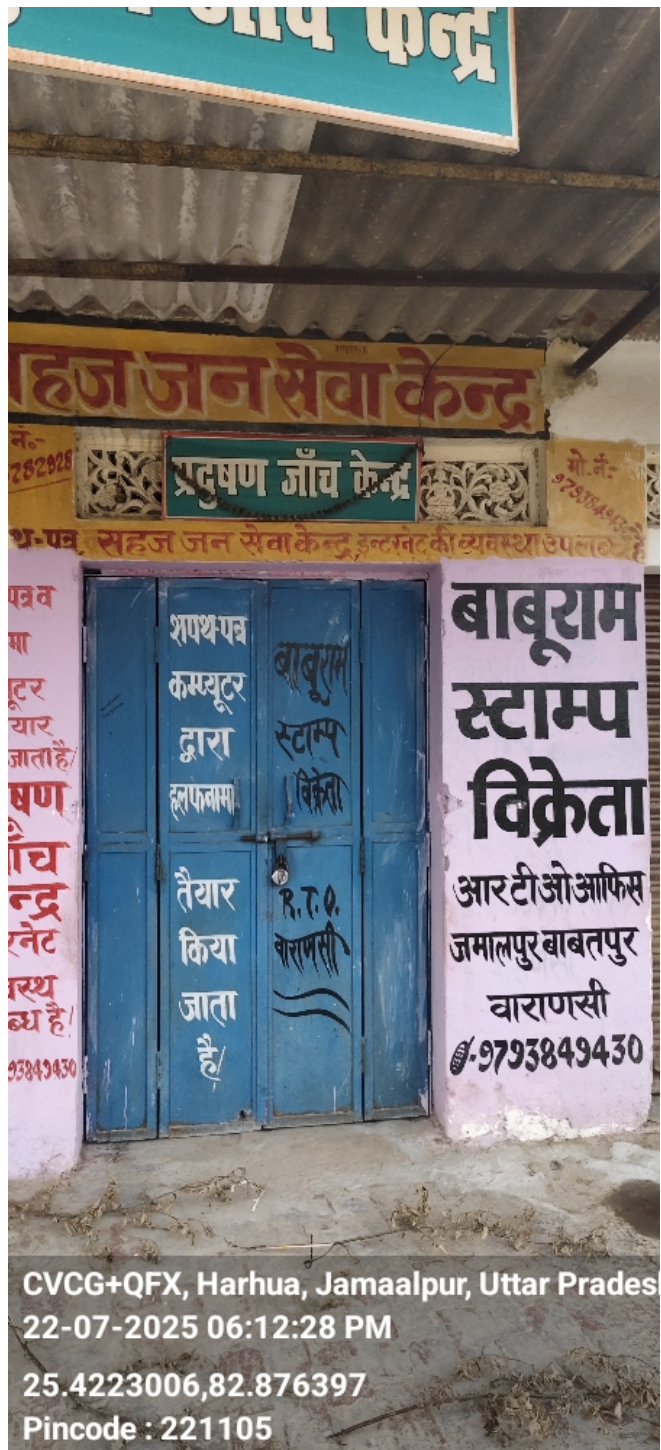 जाँच केन्द्र
सहज जन सेवा केन्द्र
नं.-
प्रदुषण जाँच केन्द्र
मो.नं:
9793849430
सहज जन सेवा केन्द्र, इन्टरनेट की व्यवस्था उपलब्ध है
पत्र व
जाता है/
93849430
शपथ-पत्र
कम्प्यूटर
द्वारा
हलफनामा
तैयार
किया
जाता
है/
बाबूराम
स्टाम्प
विक्रेता
R.T.O.
वाराणसी
बाबूराम
स्टाम्प
विक्रेता
आर टी ओ आफिस
जमालपुर बाबतपुर
वाराणसी
-9793849430
CVCG+QFX, Harhua, Jamaalpur, Uttar Pradesh
22-07-2025 06:12:28 PM
25.4223006,82.876397
Pincode : 221105